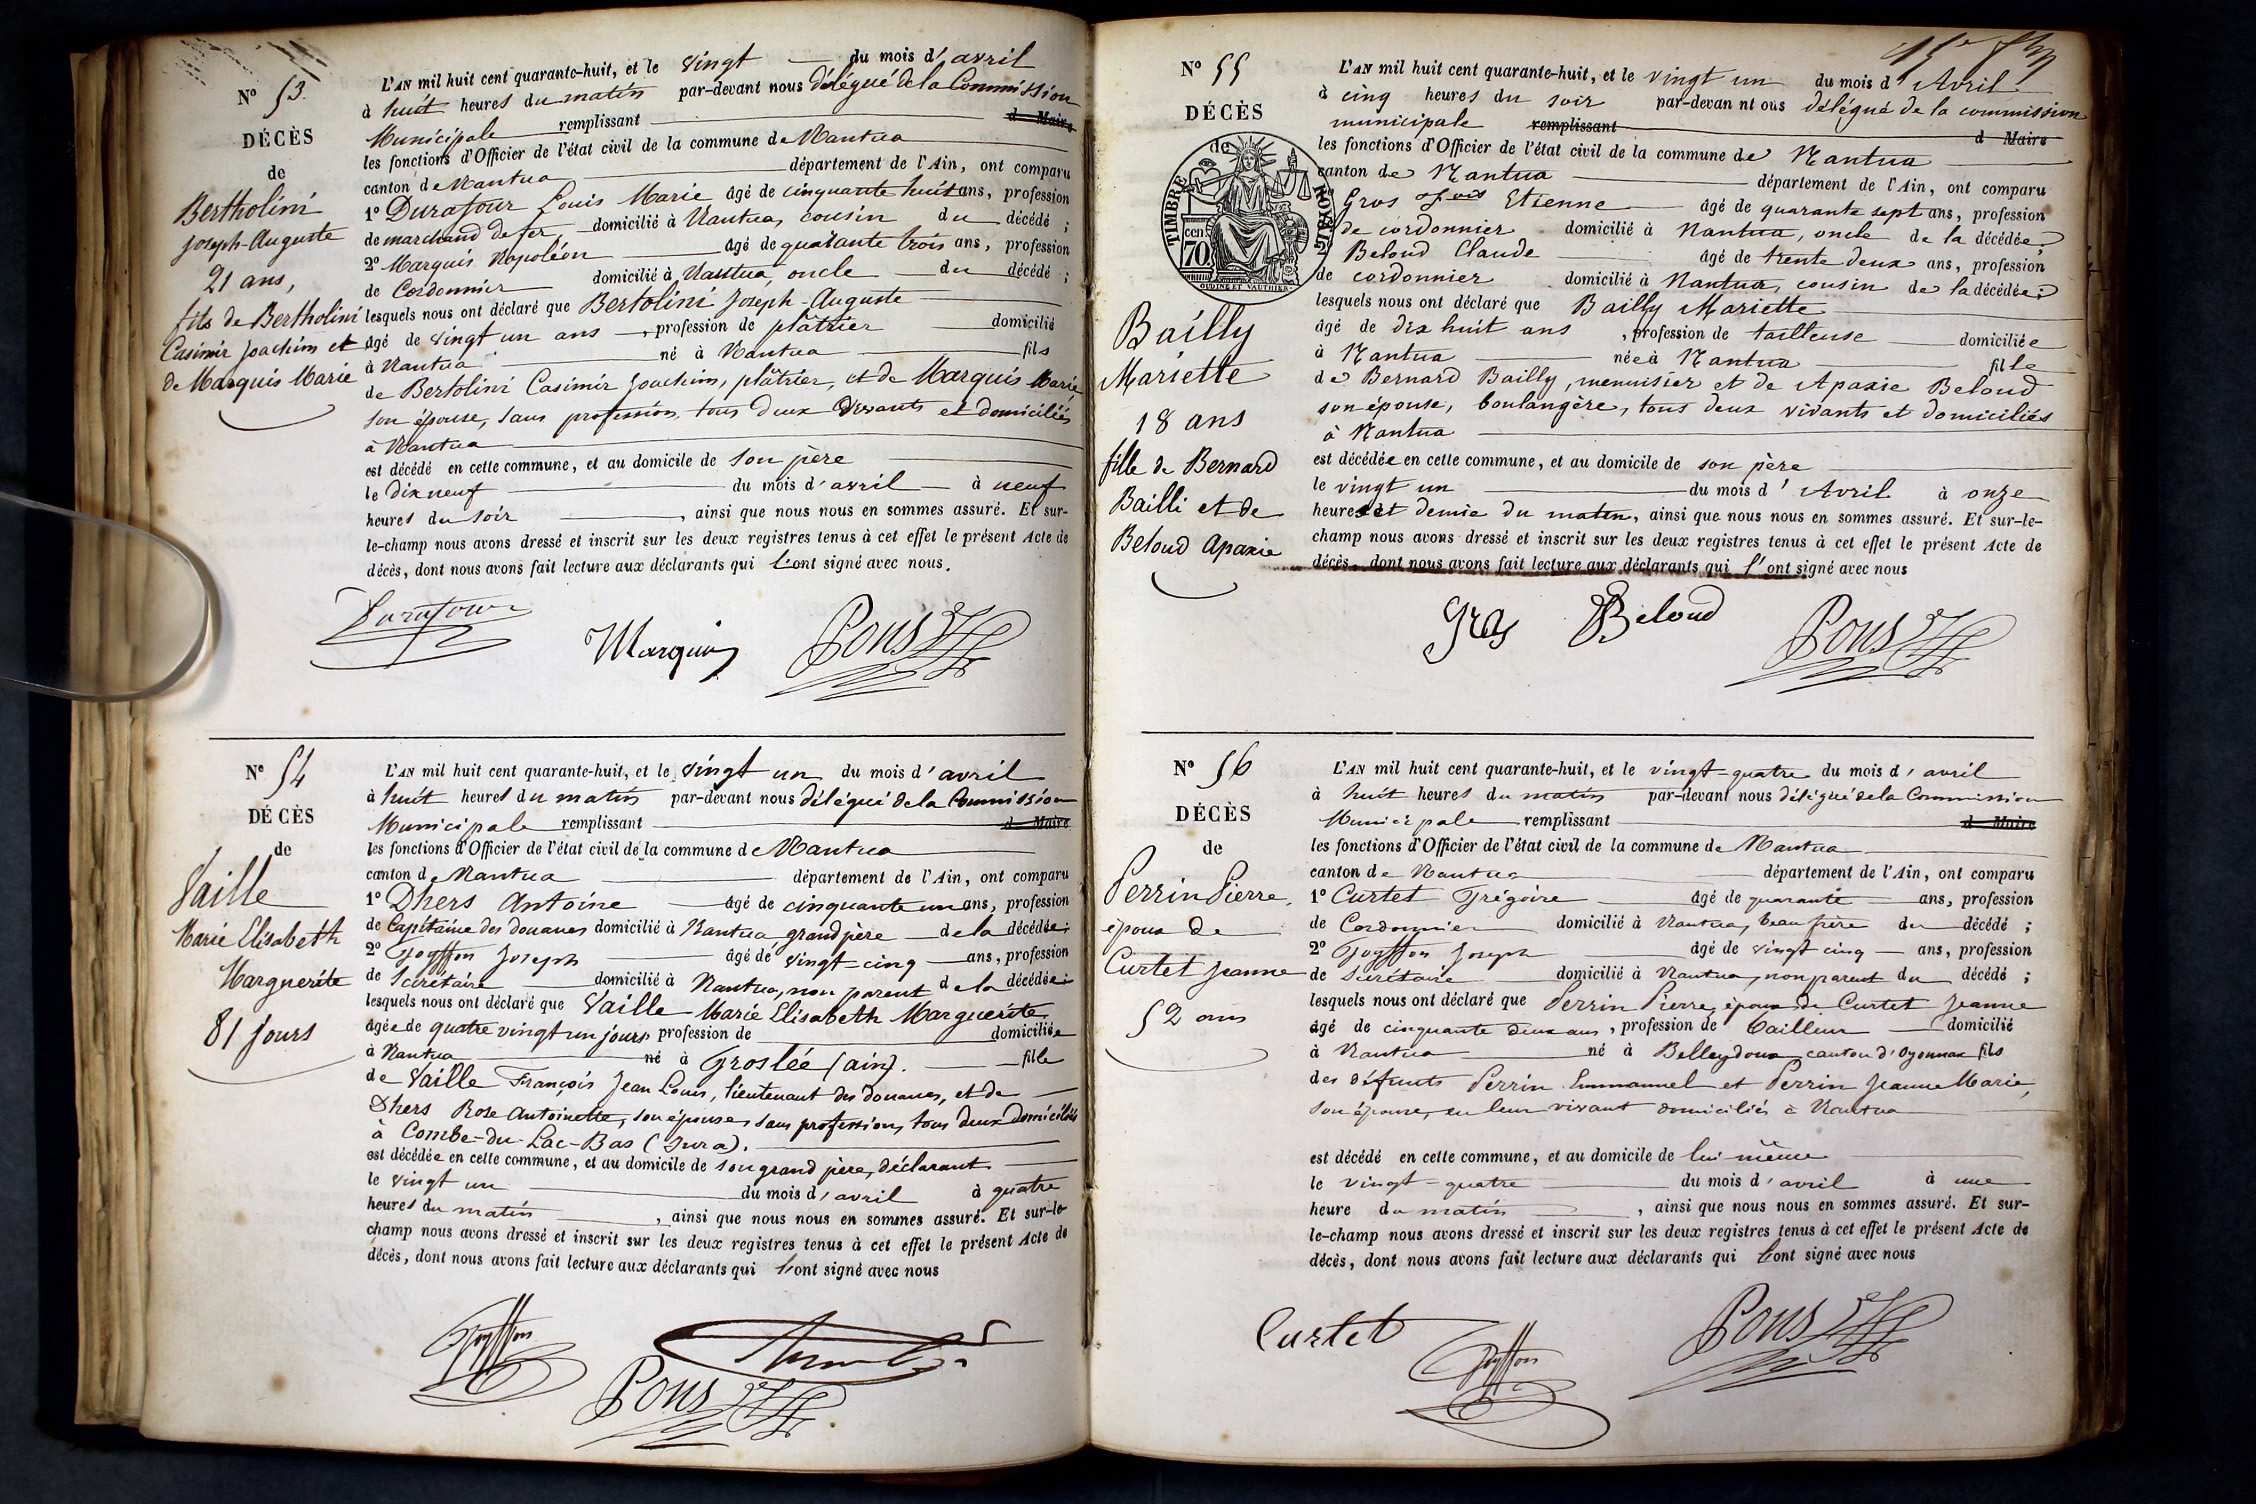 N° 53
DÉCÈS
de
Bertholini
Joseph-Auguste
21 ans,
fils de Bertholini
Casimir Joachim et
de Marquis Marie
L'AN mil huit cent quarante-huit, et le vingt du mois d'avril
à huit heures du matin par-devant nous délégué de la Commission
Municipale remplissant d Maire
les fonctions d'Officier de l'état civil de la commune de Nantua
canton de Nantua département de l'Ain, ont comparu
1° Durafour Louis Marie âgé de cinquante huit ans, profession
de marchand de fer, domicilié à Nantua, cousin du décédé ;
2° Marquis Napoléon âgé de quarante trois ans, profession
de Cordonnier domicilié à Nantua, oncle du décédé ;
lesquels nous ont déclaré que Bertolini Joseph-Auguste
âgé de vingt un ans, profession de plâtrier domicilié
à Nantua né à Nantua fils
de Bertolini Casimir Joachim, plâtrier, et de Marquis Marie
son épouse, sans profession, tous deux vivants et domiciliés
à Nantua
est décédé en cette commune, et au domicile de son père
le dix neuf du mois d'avril à neuf
heures du soir, ainsi que nous nous en sommes assuré. Et sur-
le-champ nous avons dressé et inscrit sur les deux registres tenus à cet effet le présent Acte de
décès, dont nous avons fait lecture aux déclarants qui l'ont signé avec nous.
Durafour
Marquis
Pons
N° 54
DÉCÈS
de
Vaille
Marie Elisabeth
Marguerite
81 jours
L'AN mil huit cent quarante-huit, et le vingt un du mois d'avril
à huit heures du matin par-devant nous délégué de la Commission
Municipale remplissant d Maire
les fonctions d'Officier de l'état civil de la commune de Nantua
canton de Nantua département de l'Ain, ont comparu
1° Dhers Antoine âgé de cinquante un ans, profession
de Capitaine des douanes domicilié à Nantua grand père de la décédée ;
2° Goyffon Joseph âgé de vingt-cinq ans, profession
de Secrétaire domicilié à Nantua, non parent de la décédée ;
lesquels nous ont déclaré que Vaille Marie Elisabeth Marguerite
âgée de quatre vingt un jours, profession de domiciliée
à Nantua né à Groslée (ain). fille
de Vaille François Jean Louis, lieutenant des douanes, et de
Dhers Rose Antoinette, son épouse, sans profession, tous deux domiciliés
à Combe-du-Lac-Bas (Jura).
est décédée en cette commune, et au domicile de son grand père, déclarant
le vingt un du mois d'avril à quatre
heures du matin, ainsi que nous nous en sommes assuré. Et sur-le-
champ nous avons dressé et inscrit sur les deux registres tenus à cet effet le présent Acte de
décès, dont nous avons fait lecture aux déclarants qui l'ont signé avec nous
Goyffon
Pons
N° 55
DÉCÈS
de
TIMBRE ROYAL
70 cen
OUDINÉ ET VAUTHIER
Bailly
Mariette
18 ans
fille de Bernard
Bailli et de
Beloud Apaxie
L'AN mil huit cent quarante-huit, et le vingt un du mois d'Avril
à cinq heures du soir par-devan nt ous délégué de la commission
municipale remplissant d Maire
les fonctions d'Officier de l'état civil de la commune de Nantua
canton de Nantua département de l'Ain, ont comparu
Gros Etienne âgé de quarante sept ans, profession
de cordonnier domicilié à Nantua, oncle de la décédée ;
Beloud Claude âgé de trente deux ans, profession
de cordonnier domicilié à Nantua, cousin de la décédée ;
lesquels nous ont déclaré que Bailly Mariette
âgé de dix huit ans, profession de tailleuse domiciliée
à Nantua née à Nantua fille
de Bernard Bailly, menuisier et de Apaxie Beloud
son épouse, boulangère, tous deux vivants et domiciliés
à Nantua
est décédée en cette commune, et au domicile de son père
le vingt un du mois d'Avril à onze
heures et demie du matin, ainsi que nous nous en sommes assuré. Et sur-le-
champ nous avons dressé et inscrit sur les deux registres tenus à cet effet le présent Acte de
décès, dont nous avons fait lecture aux déclarants qui l'ont signé avec nous
Gros Beloud
Pons
N° 56
DÉCÈS
de
Perrin Pierre,
époux de
Curtet Jeanne
52 ans
L'AN mil huit cent quarante-huit, et le vingt-quatre du mois d'avril
à huit heures du matin par-devant nous délégué de la Commission
Municipale remplissant d Maire
les fonctions d'Officier de l'état civil de la commune de Nantua
canton de Nantua département de l'Ain, ont comparu
1° Curtet Grégoire âgé de quarante ans, profession
de Cordonnier domicilié à Nantua, beau frère du décédé ;
2° Goyffon Joseph âgé de vingt cinq ans, profession
de Secrétaire domicilié à Nantua, non parent du décédé ;
lesquels nous ont déclaré que Perrin Pierre, époux de Curtet Jeanne
âgé de cinquante deux ans, profession de tailleur domicilié
à Nantua né à Belleydoux canton d'Oyonnax fils
des défunts Perrin Emmanuel et Perrin Jeanne Marie,
son épouse, en leur vivant domiciliés à Nantua
est décédé en cette commune, et au domicile de lui même
le vingt-quatre du mois d'avril à une
heure du matin, ainsi que nous nous en sommes assuré. Et sur-
le-champ nous avons dressé et inscrit sur les deux registres tenus à cet effet le présent Acte de
décès, dont nous avons fait lecture aux déclarants qui l'ont signé avec nous
Curtet
Goyffon
Pons